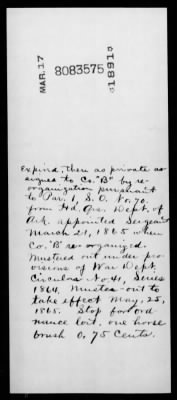 MAR. 17
8083575
1891
Expired, then as private as-
signed to Co. "B" by re-
organization pursuant
to Par. 1, S.O. No. 70.
from Hd. Qrs. Dept. of
Ark. appointed Sergeant
March 21, 1865 when
Co. "B" re-organized.
Mustered out under pro-
visions of War Dept.
Circular No. 41, Series
1864. Muster-out to
take effect May, 25,
1865. Stop for ord
nance lost, one horse
brush 0,75 Cents.